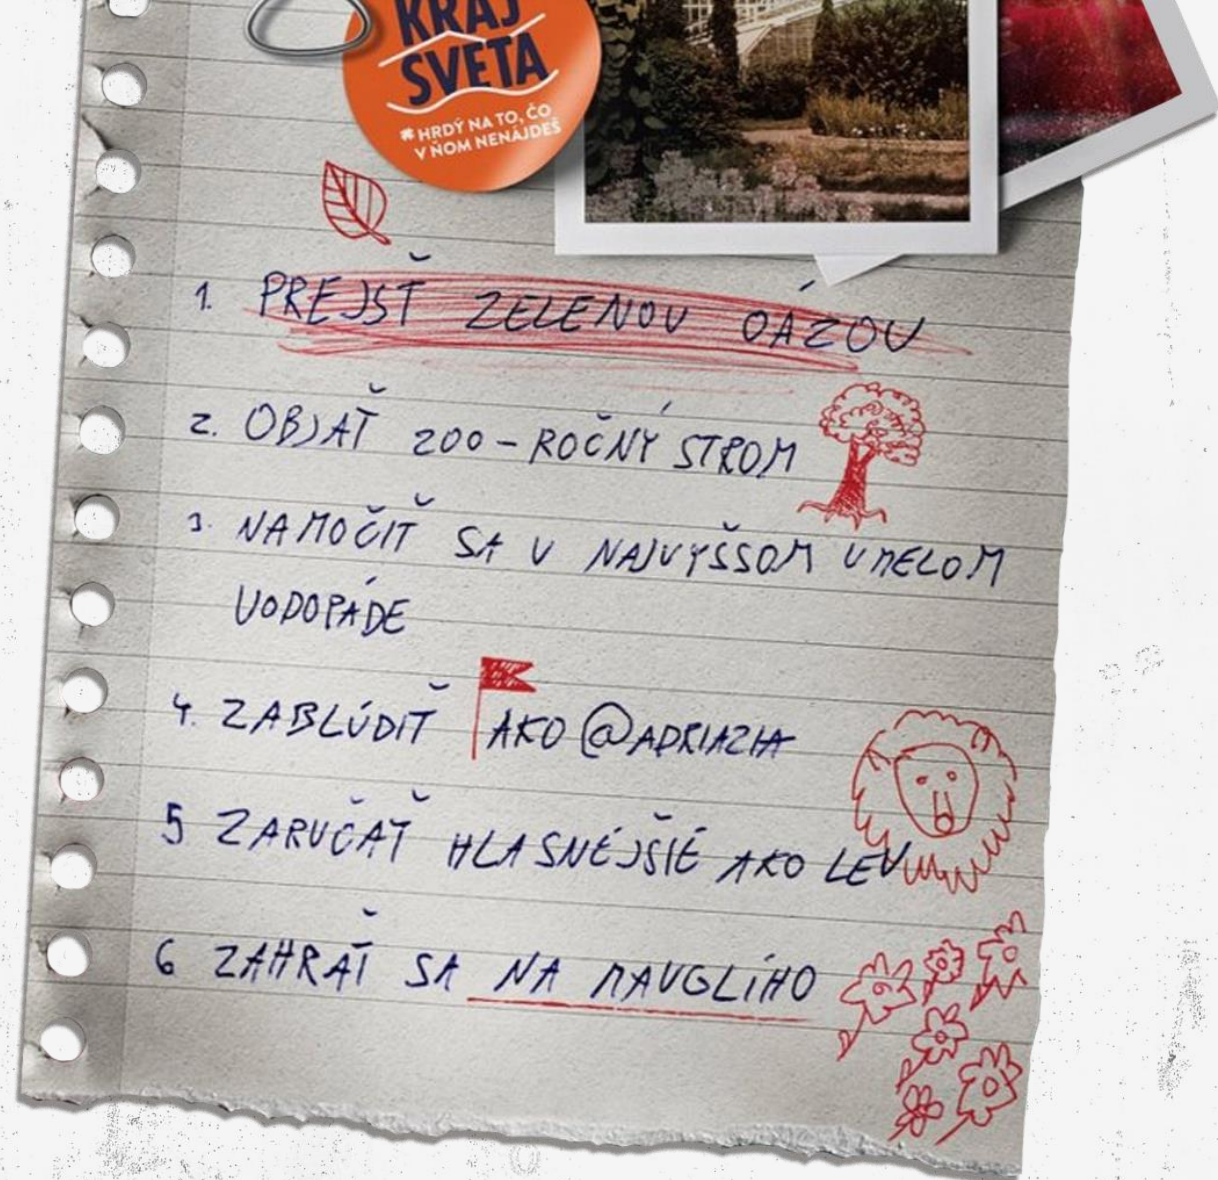 KRAJ
SVETA
*HRDÝ NA TO, ČO
V ŇOM NENÁJDEŠ
1. PREJSŤ ZELENOU OÁZOU
2. OBJAŤ 200-ROČNÝ STROM
3. NAMOČIŤ SA V NAJVYŠŠOM UMELOM
VODOPÁDE
4. ZABLÚDIŤ AKO @ADRIAZIA
5 ZARUČAŤ HLASNEJŠIE AKO LEV
6 ZAHRAŤ SA NA MAUGLÍHO